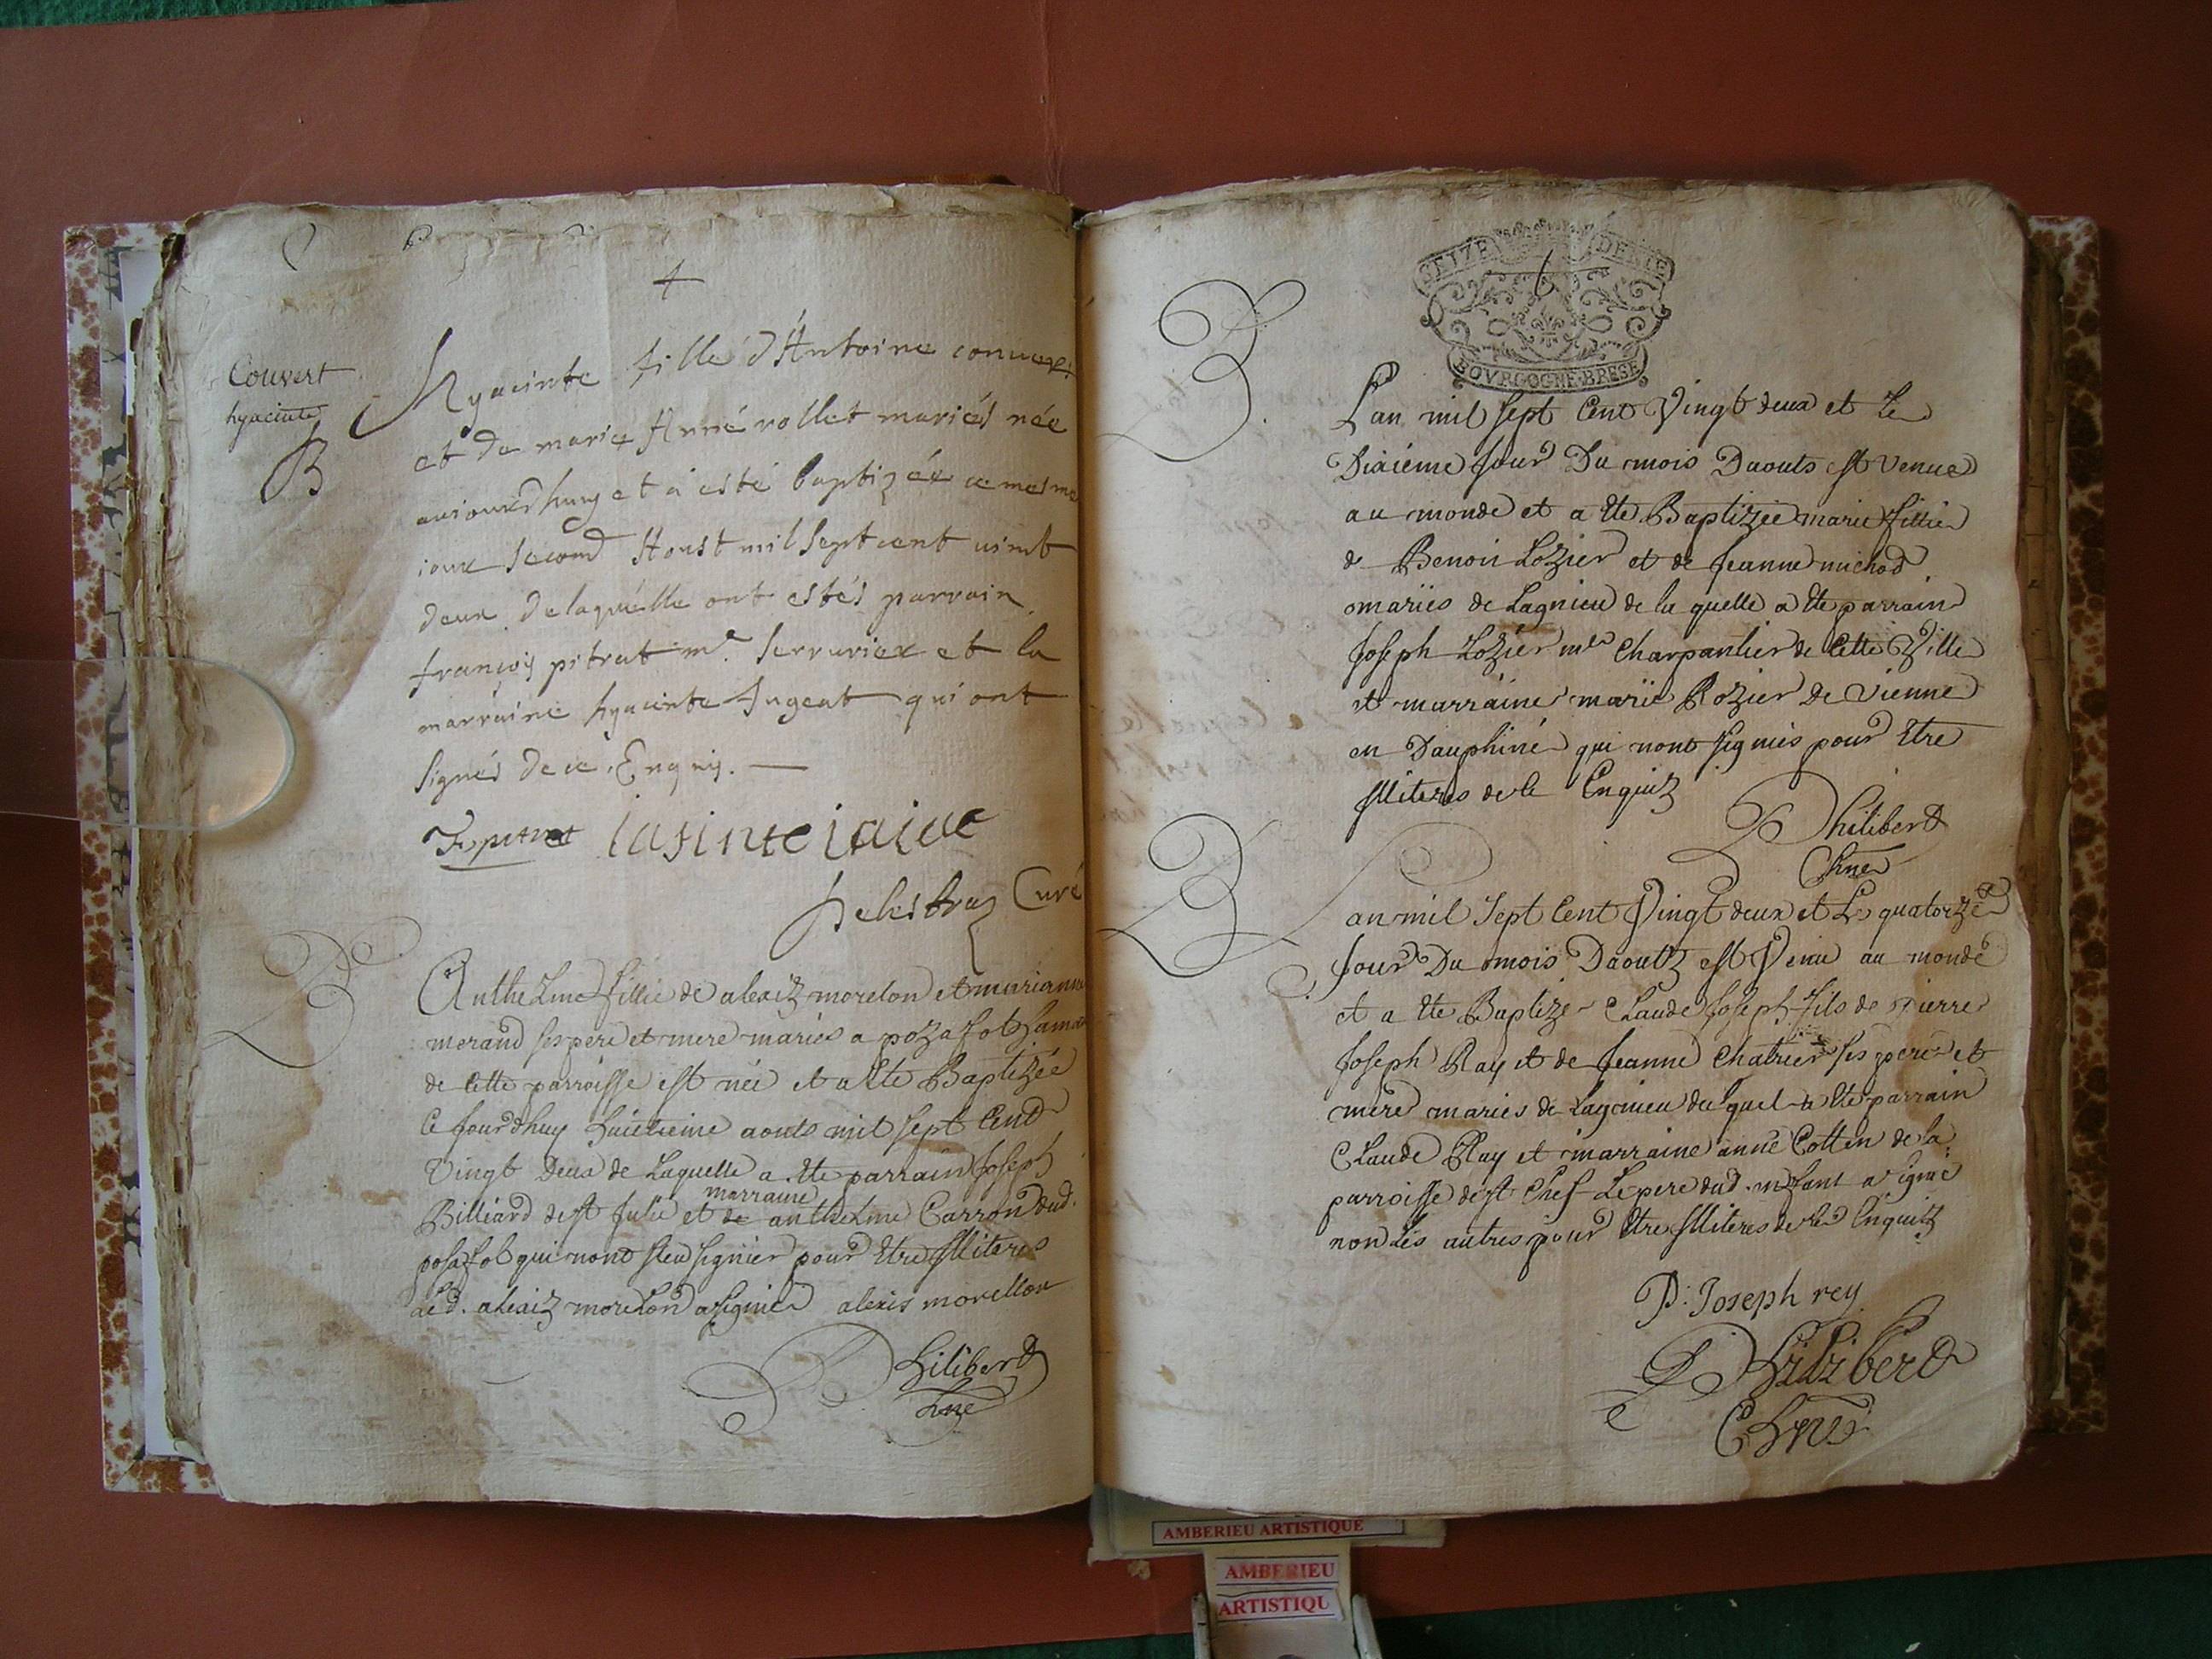 Couvert
hyacinte
B
Hyacinte fille d'Antoine couvert
et de marie Anne rollet mariés née
auiourdhuy et a esté baptizée ce mesme
iour second Aoust mil sept cent vint
deux de laquelle ont estés parrain
françois pitrat me. serrurier et la
marraine hyacinte Jugeat qui ont
signés de ce Enquis.
F pitrat
Curé
B
Anthelme fillie de alexiz morelon et marianne
morand ses pere et mere mariés a pozafol
de Cette parroisse est née et a ete Baptizée
Ce jourdhuy huictieme aouts mil sept Cent
Vingt Deux de Laquelle a ete parrain Joseph
marraine
Billiard de st Julie et de anthelme Carron dud.
posafol qui nont sceu signier pour Etre Illiteres
Led. alexiz morelon a signier alexis morellon
Philiberd
B
SEIZE DENIE
BOVRGOGNE BRESE
Lan mil sept Cent Vingt deux et Le
Dixiéme Jour Du mois Daouts est venue
au monde et a ete Baptizée marie fillie
de Benoit Lozier et de Jeanne michod
mariés de Lagnieu de la quelle a ete parrain
Joseph Lozier me Charpantier de Cette Ville
et marraine marie Rozier de Vienne
en Dauphiné qui nont signiés pour Etre
Illiteres de Ce Enquiz
Philiberd
B
Lan mil Sept Cent Vingt deux et Le quatorze
Jour Du mois Daoutz est Venu au monde
et a ete Baptize Claude Joseph fils de pierre
Joseph Ray et de Jeanne Chatrier ses pere et
mere mariés de Lagnieu du quel a ete parrain
Claude Ray et marraine anne Cotten de la
parroisse de st Chef Le pere dud. enfant a signé
non Les autres pour Etre Illiteres de Ce Enquitz
P: Joseph rey
Philiberd
AMBERIEU ARTISTIQUE
AMBERIEU
ARTISTIQU